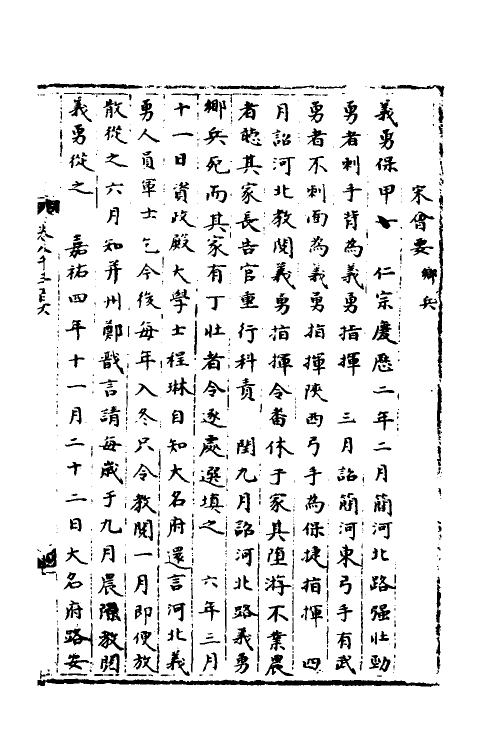 宋會要 鄉兵
義勇保甲 仁宗慶歷二年二月簡河北路强壯勁
勇者刺手背為義勇指揮 三月詔簡河東弓手有武
勇者不刺面為義勇指揮陝西弓手為保捷指揮 四
月詔河北教閱義勇指揮令番休于家其墮游不業農
者聽其家長告官重行科責 閏九月詔河北路義勇
鄉兵死而其家有丁壯者令逐處選填之 六年三月
十一日資政殿大學士程琳自知大名府還言河北義
勇人員軍士乞今後每年入冬只令教閱一月即便放
散從之六月知并州鄭戩言請每歲于九月農隙教閱
義勇從之 嘉祐四年十一月二十二日大名府路安
卷八千三百六